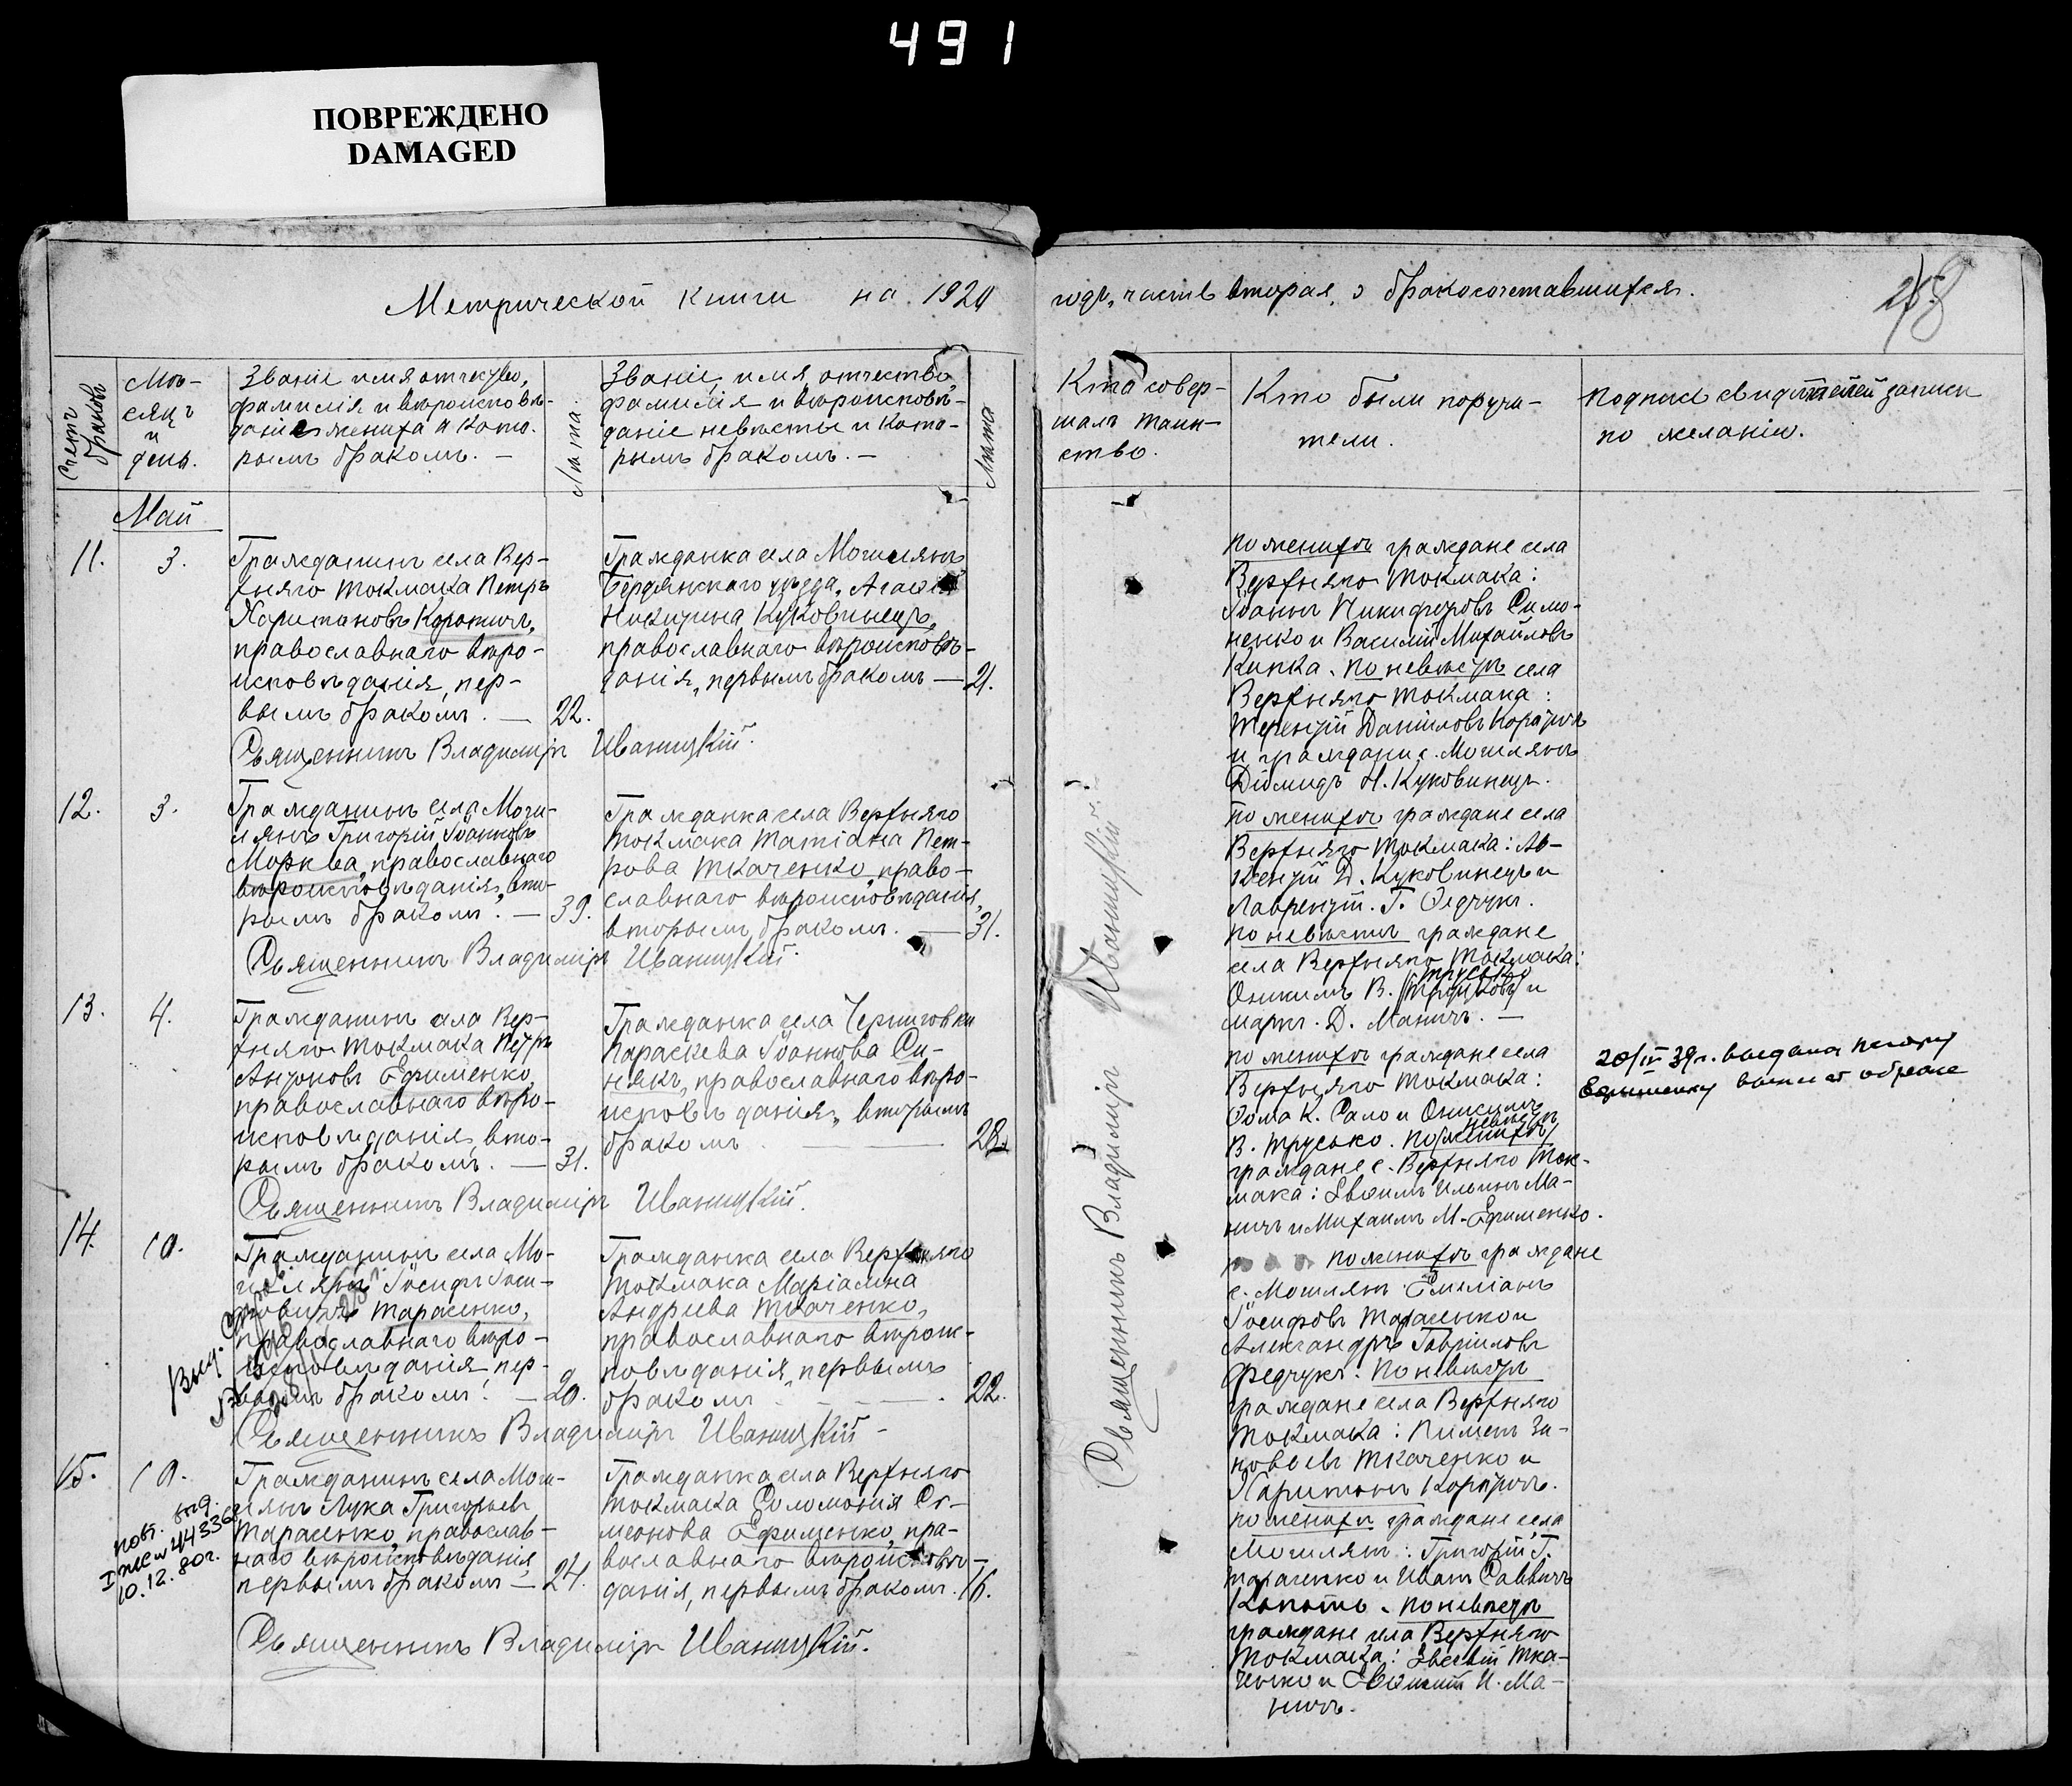 491
ПОВРЕЖДЕНО
DAMAGED
Метрической книги на 1920
годъ, часть вторая, о бракосочетавшихся.
Счетъ браковъ
Мѣ-
сяцъ
и
день.
Званіе имя отчество,
фамилія и вѣроисповѣ-
даніе жениха и кото-
рымъ бракомъ. —
Лѣта.
Званіе, имя, отчество,
фамилія и вѣроисповѣ-
даніе невѣсты и кото-
рымъ бракомъ. —
Лѣта
Кто совер-
шалъ таин-
ство.
Кто были поручи-
тели.
Подписи свидѣтелей записи
по желанію.
Май
11. 3.
Гражданинъ села Вер-
хняго Токмака Петръ
Харитоновъ
православнаго вѣро-
исповѣданія, пер-
вымъ бракомъ. — 22.
Гражданка села Могилянъ
Бердянскаго уѣзда,
Куковинецъ,
православнаго вѣроисповѣ-
данія, первымъ бракомъ — 21.
Священникъ Владиміръ Иваницкій.
По женихѣ граждане села
Верхняго Токмака:
Іоаннъ Никифоровъ Симо-
ненко и Василій Михайловъ
Кипка. По невѣстѣ села
Верхняго Токмака:
Терентій Даніиловъ
и граждани с. Могилянъ
Діомидъ Н. Куковинецъ.
12. 3.
Гражданинъ села Моги-
лянъ Григорій Іоанновъ
Морква, православнаго
вѣроисповѣданія, вто-
рымъ бракомъ. — 39.
Гражданка села Верхняго
Токмака Татіана Пет-
рова Ткаченко, право-
славнаго вѣроисповѣданія,
вторымъ бракомъ. — 31.
Священникъ Владиміръ Иваницкій.
По женихѣ граждане села
Верхняго Токмака: Ав-
ксентій Д. Куковинецъ и
Лаврентій. Г. Федчукъ.
По невѣстѣ граждане
села Верхняго Токмака:
Трусько
Онисимъ В. и
Маркъ. Д. Маничъ. —
13. 4.
Гражданинъ села Вер-
хняго Токмака Петръ
Антоновъ Ефименко,
православнаго вѣро-
исповѣданія, вто-
рымъ бракомъ. — 31.
Гражданка села Черниговки
Параскева Іоаннова Си-
някъ, православнаго вѣро-
исповѣданія, вторымъ
бракомъ — 28.
Священникъ Владиміръ Иваницкій.
По женихѣ граждане села
Верхняго Токмака:
Фома К. Сало и Онисимъ
невѣстѣ
В. Трусько. По женихѣ
граждане с. Верхняго Ток-
мака: Евфимъ Ильинъ Ма-
ничъ и Михаилъ М. Ефименко.
20/III 39г. выдана
Ефименку о браке
14. 10.
Гражданинъ села Мо-
гилянъ Іосифъ Іоси-
фовичъ Тарасенко,
православнаго вѣро-
исповѣданія, пер-
вымъ бракомъ. — 20.
Гражданка села Верхняго
Токмака Маріамна
Андреева Ткаченко,
православнаго вѣроис-
повѣданія, первымъ
бракомъ — 22.
Священникъ Владиміръ Иваницкій —
По женихѣ граждане
с. Могилянъ Емиліанъ
Іосифовъ Тарасенко и
Александръ Гавріиловъ
Федчукъ. По невѣстѣ
граждане села Верхняго
Токмака: Пименъ Зи-
новьевъ Ткаченко и
Харитонъ
15. 10.
Гражданинъ села Моги-
лянъ Лука Григорьевъ
Тарасенко, православ-
наго вѣроисповѣданія,
первымъ бракомъ — 24.
Гражданка села Верхняго
Токмака Соломонія Си-
меонова Ефименко, пра-
вославнаго вѣроисповѣ-
данія, первымъ бракомъ. 16.
повт. выд.
10.12.80г.
Священникъ Владиміръ Иваницкій.
По женихѣ граждане села
Могилянъ: Григорій Г.
Тарасенко и Иванъ Саввичъ
Копоть. По невѣстѣ
граждане села Верхняго
Токмака: Тка-
ченко и И. Ма-
ничъ.
Священникъ Владиміръ Иваницкій